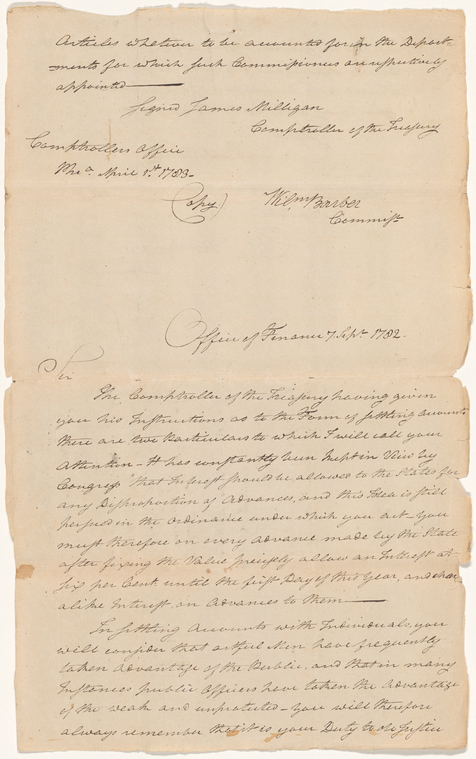 Articles whatever to be accounted for in the Depart-
ments for which such Commissioners are respectively
appointed
Signed James Milligan
Comptroller of the Treasury
Comptrollers Office
Pha. April 1st. 1783-
(Copy)
Wilm. Barber
Commissr.
Office of Finance 7 Sept. 1782.
Sir
The Comptroller of the Treasury having given
you his Instructions as to the Form of settling accounts
there are two Particulars to which I will call your
Attention- It has constantly been kept in View by
Congress that Interest should be allowed to the States for
any Disproportion of Advances, and this Idea is still
persued in the Ordinance under which you act- You
must therefore on every advance made by the State
after fixing the Value precisely allow an Interest at
six per Cent. until the first Day of this Year, and
alike Interest on Advances to them
In settling Accounts with Individuals, you
will consider that artful Men have frequently
taken Advantage of the Public, and that in many
Instances public Officers have taken the Advantage
of the weak and unprotected- You will therefore
always remember that it is your Duty to do Justice